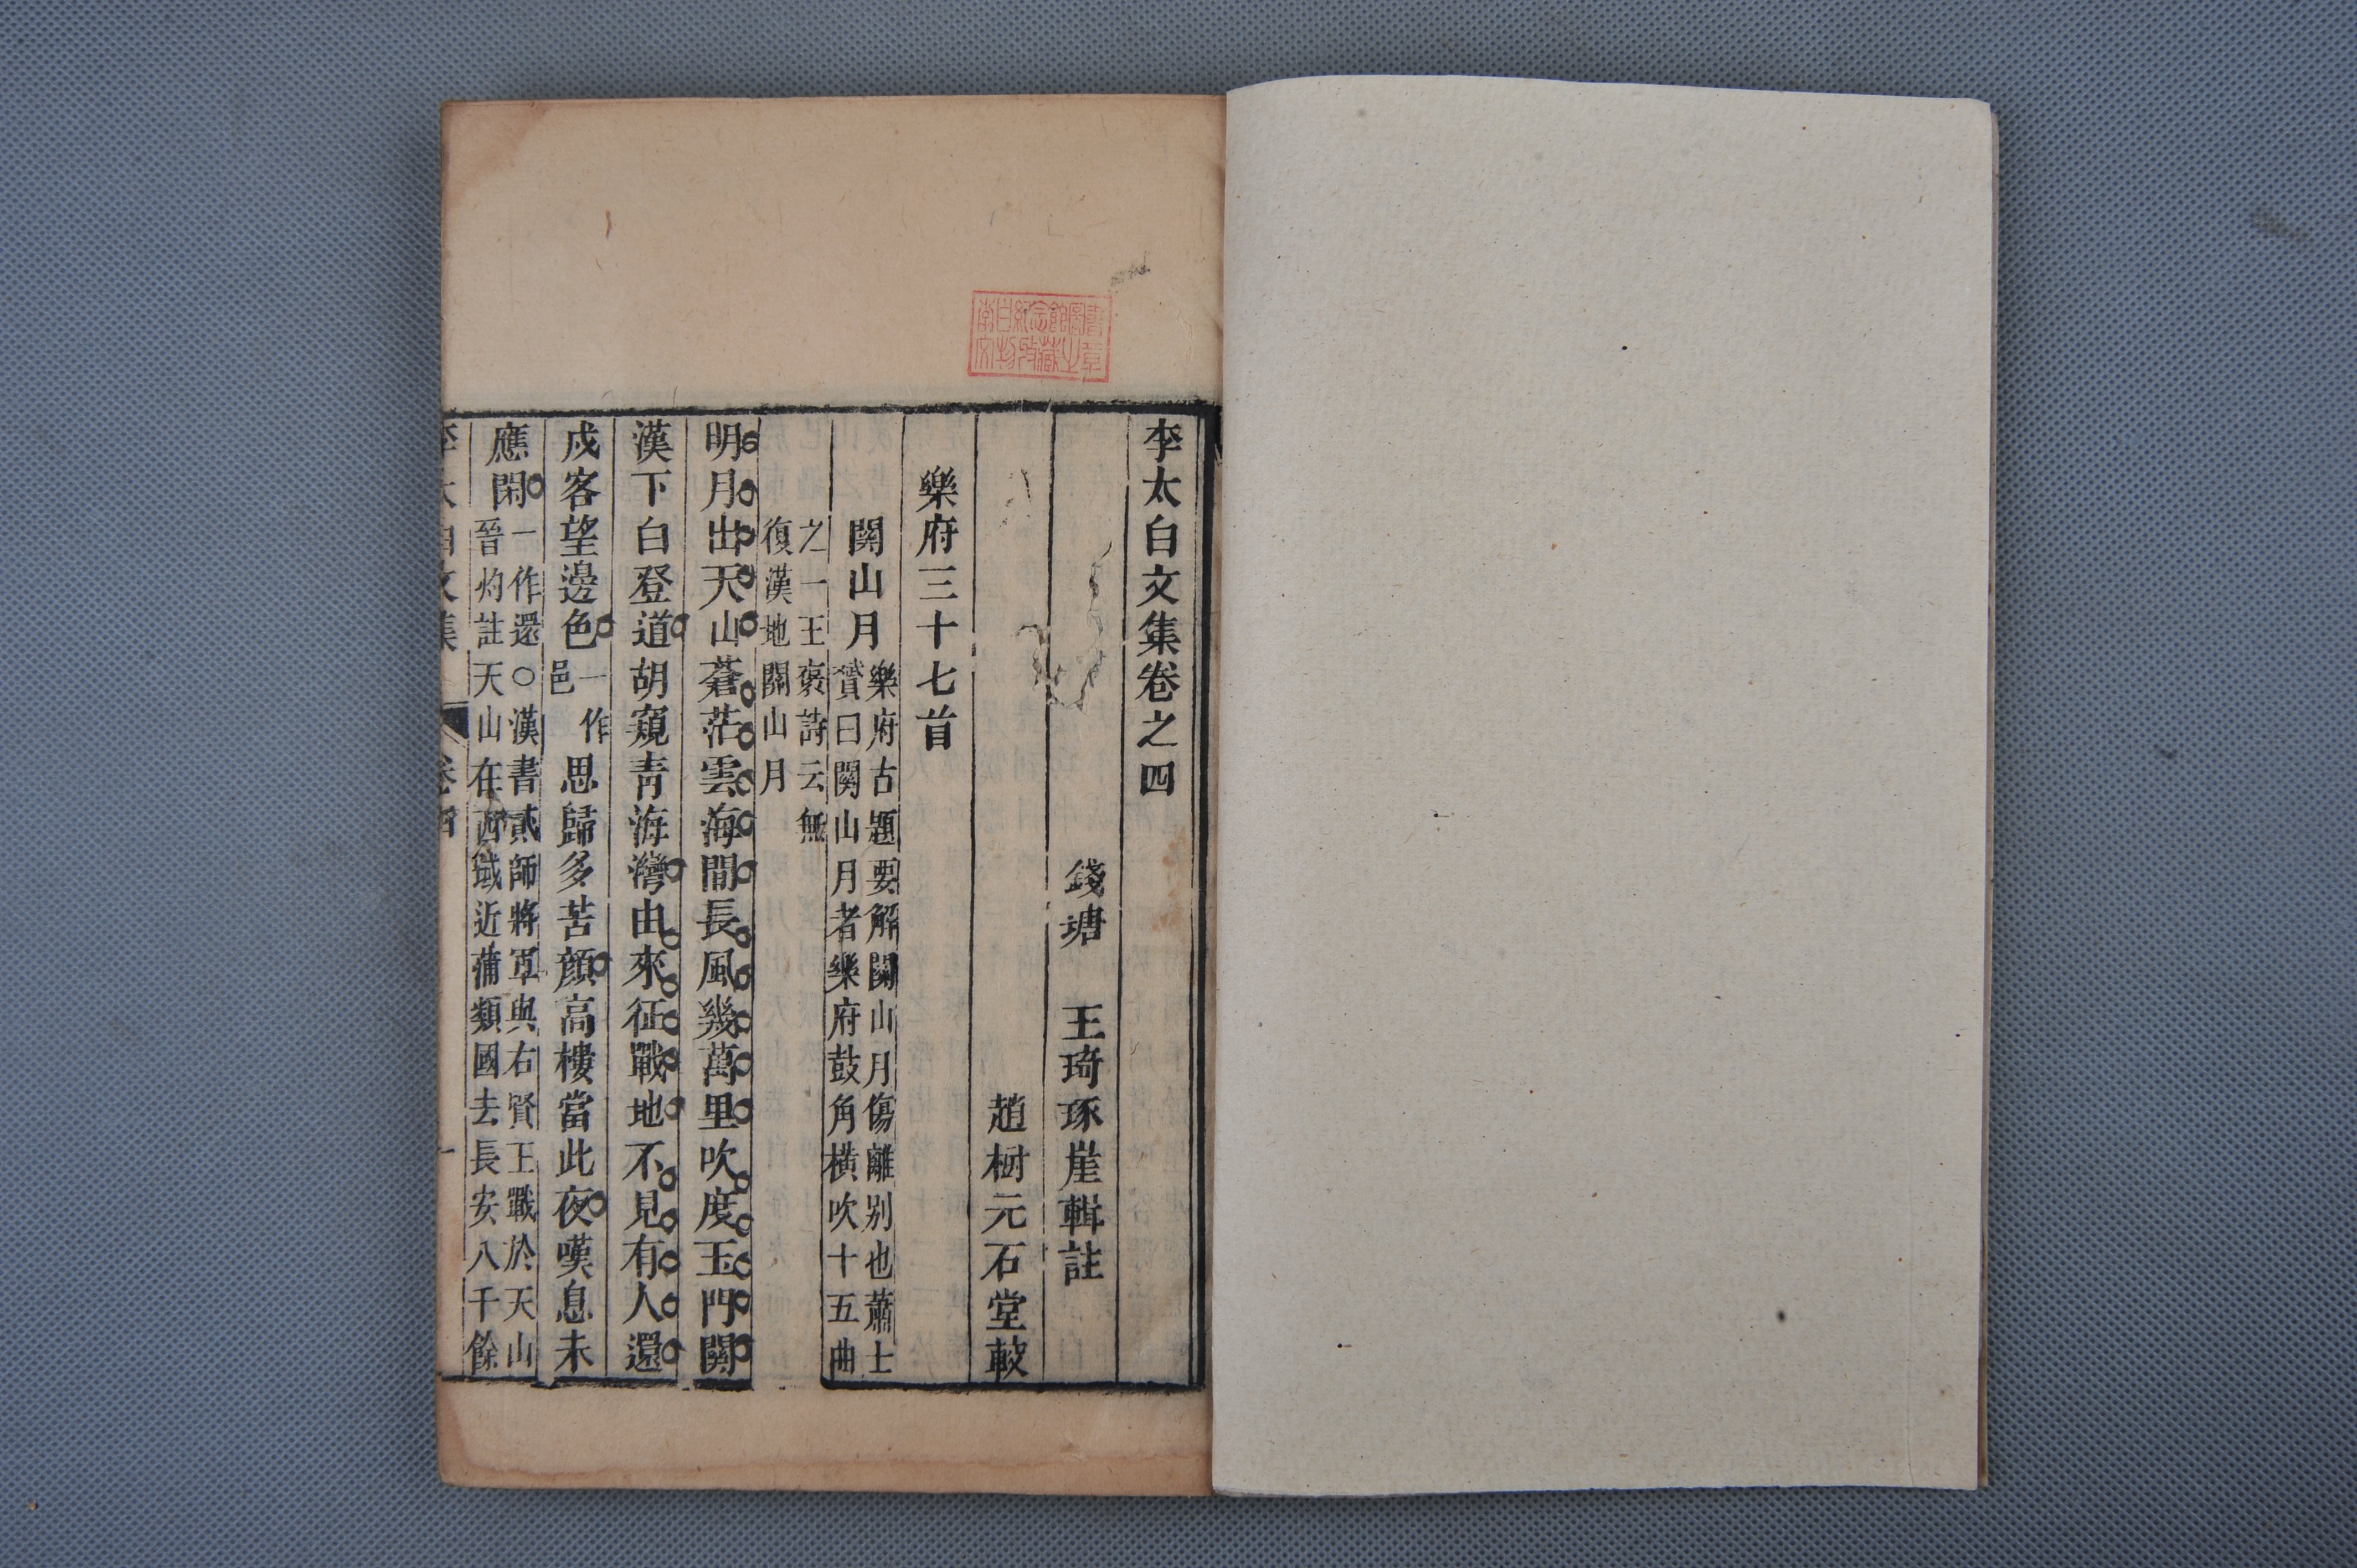 李太白文集卷之四
錢塘 王琦琢崖輯註
趙樹元石堂較
樂府三十七首
關山月
樂府古題要解關山月傷離别也蕭士
贇曰關山月者樂府鼓角橫吹十五曲
之一王褒詩云無
復漢地關山月
明月出天山蒼茫雲海間長風幾萬里吹度玉門關
漢下白登道胡窺青海灣由來征戰地不見有人還
戍客望邊色一作邑思歸多苦顔高樓當此夜嘆息未
應閑
一作還○漢書貳師將軍與右賢王戰於天山
晉灼註天山在西域近蒲類國去長安八千餘
李太白文集 卷四 一
李白紀念館圖書
文物收藏之章